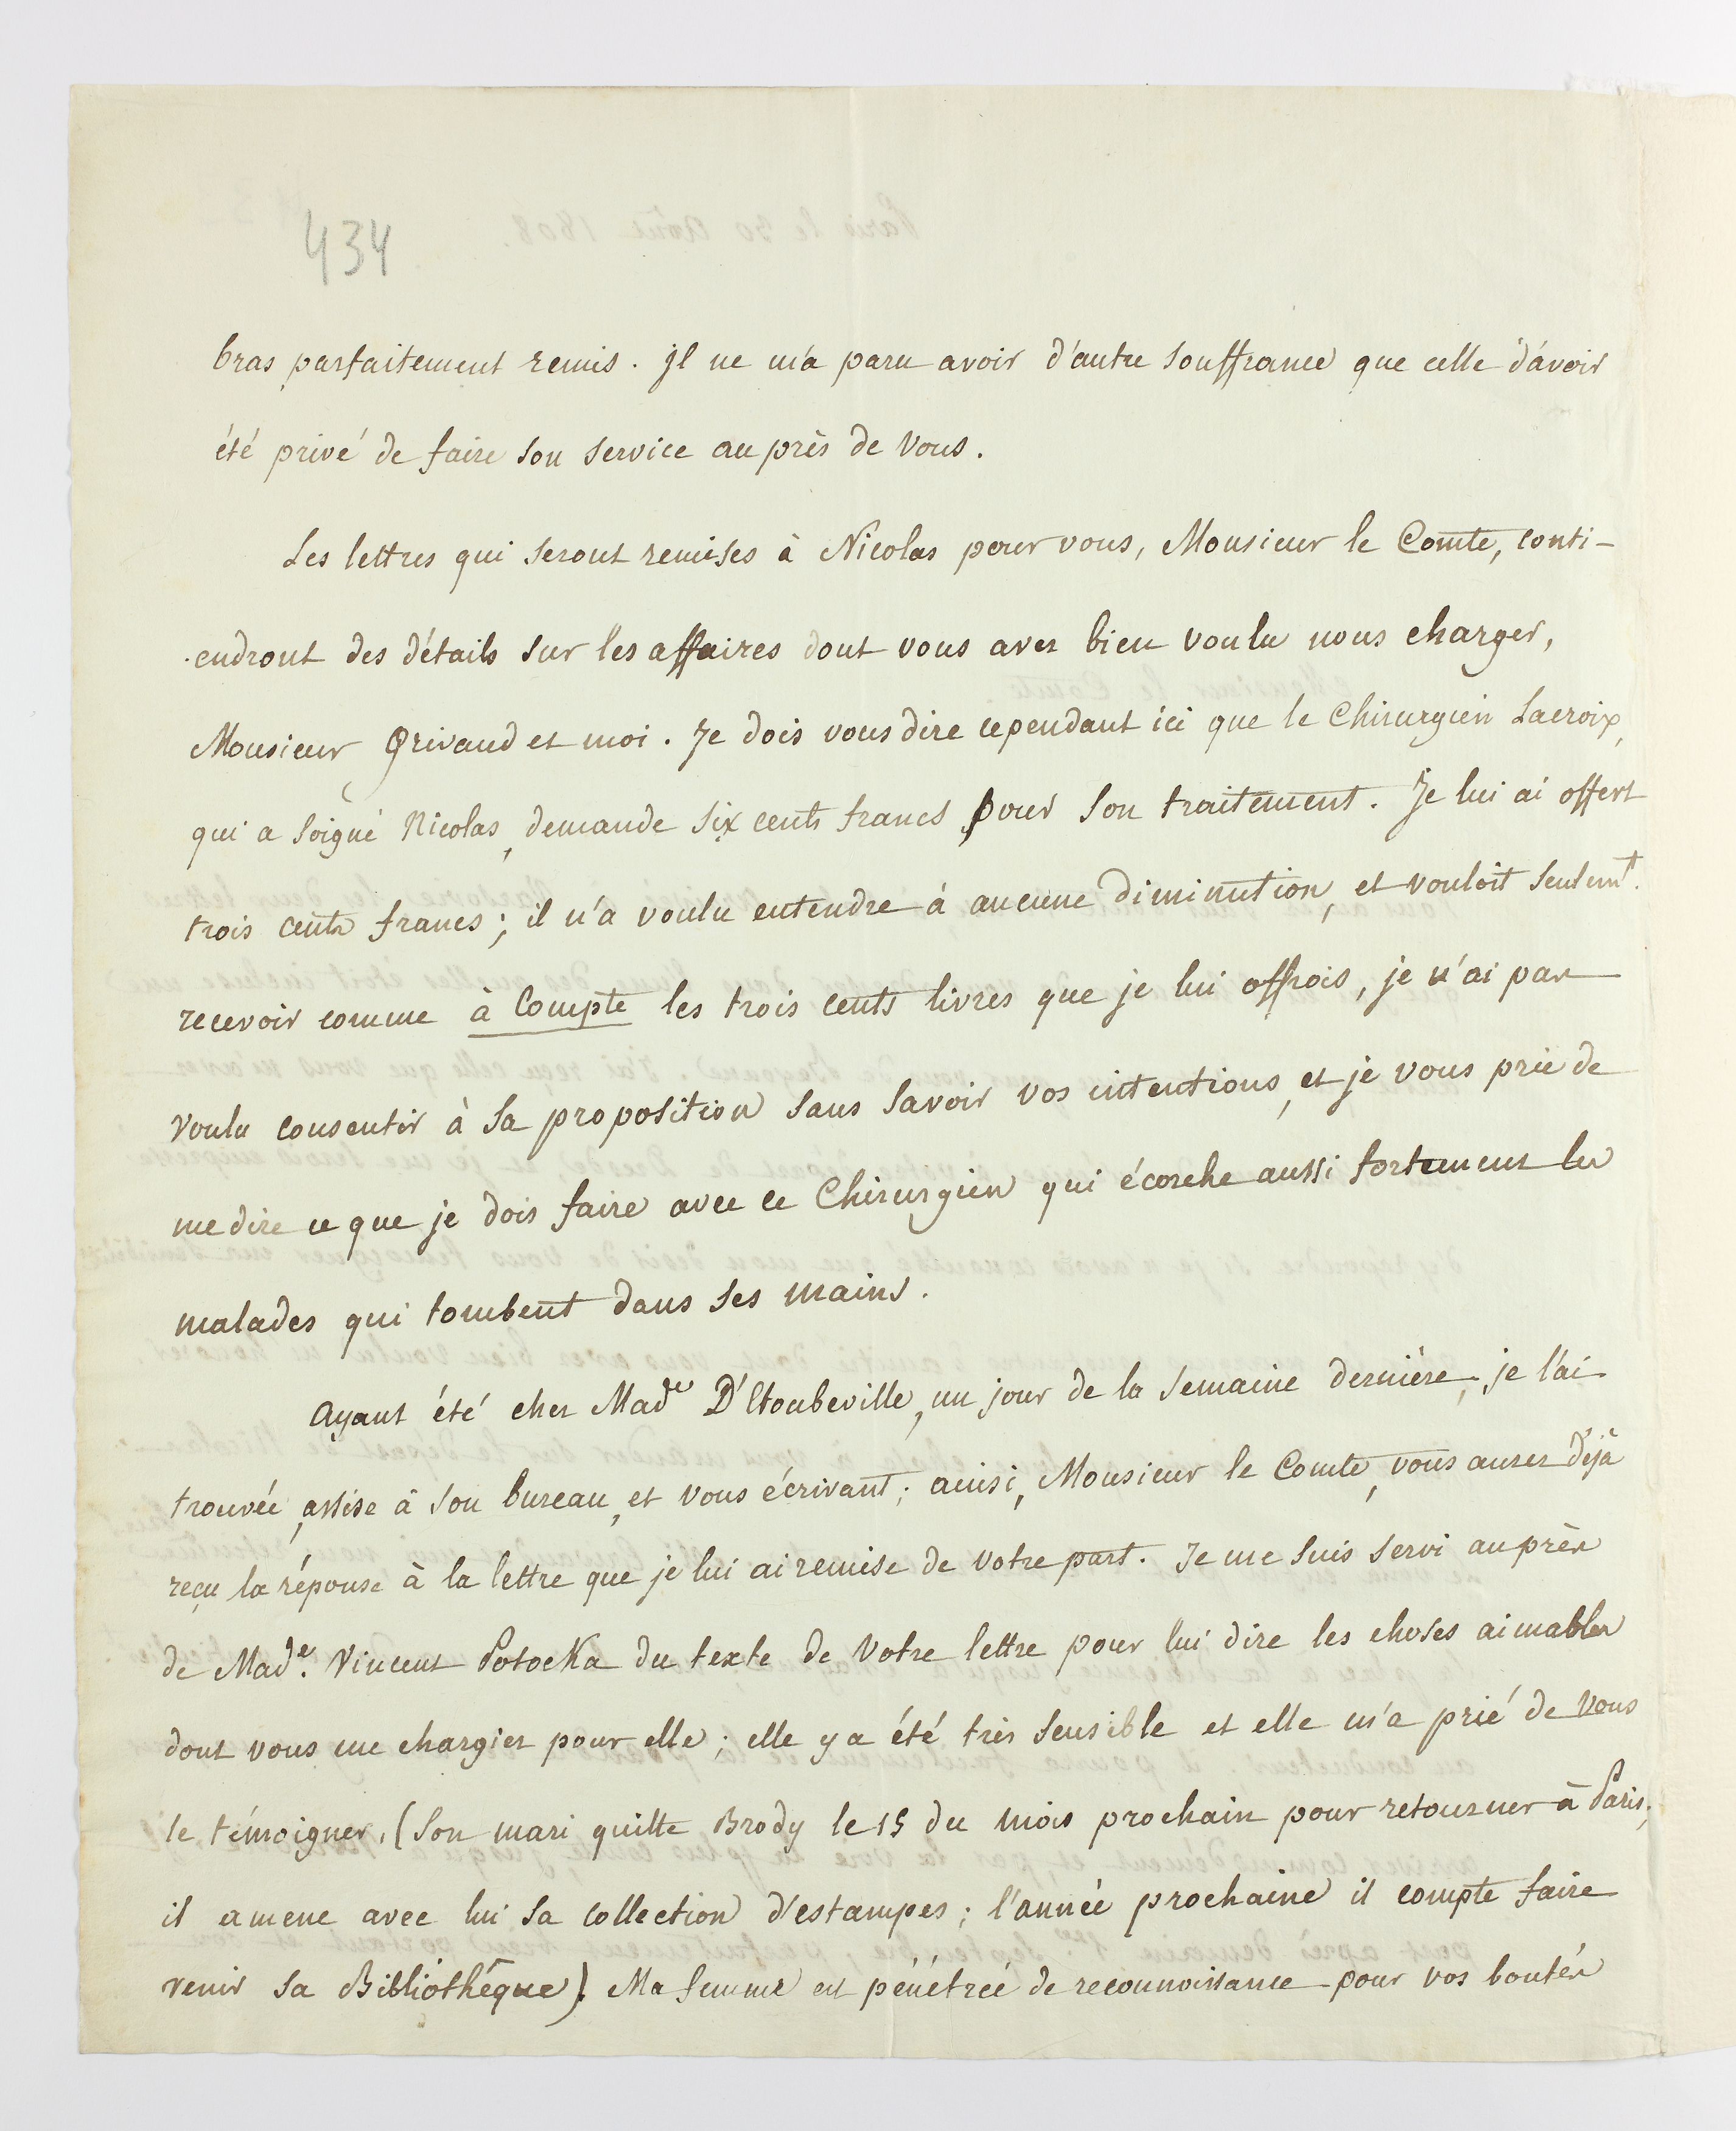 434
bras parfaitement remis. Il ne m'a paru avoir d'autre souffrance que celle d'avoir
été privé de faire son service au près de vous.
Les lettres qui seront remises à Nicolas pour vous, Monsieur le Comte, conti-
endront des détails sur les affaires dont vous avez bien voulu nous charger,
Monsieur Grivaud et moi. Je dois vous dire cependant ici que le Chirurgien Lacroix,
qui a soigné Nicolas, demande six cents francs pour son traitement. Je lui ai offert
trois cents francs; il n'a voulu entendre à aucune diminution, et vouloit seulemt.
recevoir comme à Compte les trois cents livres que je lui offrois, je n'ai pas
voulu consentir à sa proposition sans savoir vos intentions, et je vous prie de
me dire ce que je dois faire avec ce Chirurgien qui écorche aussi fortement les
malades qui tombent dans ses mains.
Ayant été chez Made D', un jour de la semaine dernière, je l'ai
trouvée, assise à son bureau, et vous écrivant; ainsi, Monsieur le Comte, vous aurez déjà
reçu la réponse à la lettre que je lui ai remise de votre part. Je me suis servi auprès
de Made. Vincent Potocka du texte de votre lettre pour lui dire les choses aimables
dont vous me chargiez pour elle; elle y a été très sensible et elle m'a prié de vous
le témoigner. (Son mari quitte Brody le 15 du mois prochain pour retourner à Paris;
il amene avec lui sa collection d'estampes; l'année prochaine il compte faire
venir sa Bibliothêque). Ma femme est pénétrée de reconnoissance pour vos bontés